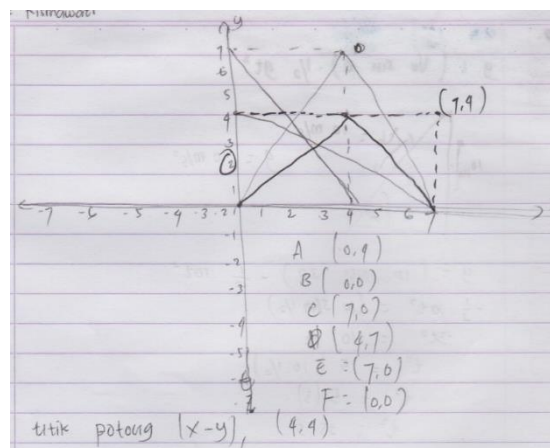 y
7
6
5
4
3
2
1
(7,4)
-7 -6 -5 -4 -3 -2 1 2 3 4 5 6 7
-1
-2
-3
-4
-5
-6
-7
A (0,4)
B (0,0)
C (7,0)
D (4,7)
E = (7,0)
F = (0,0)
titik potong (x-y), (4,4)